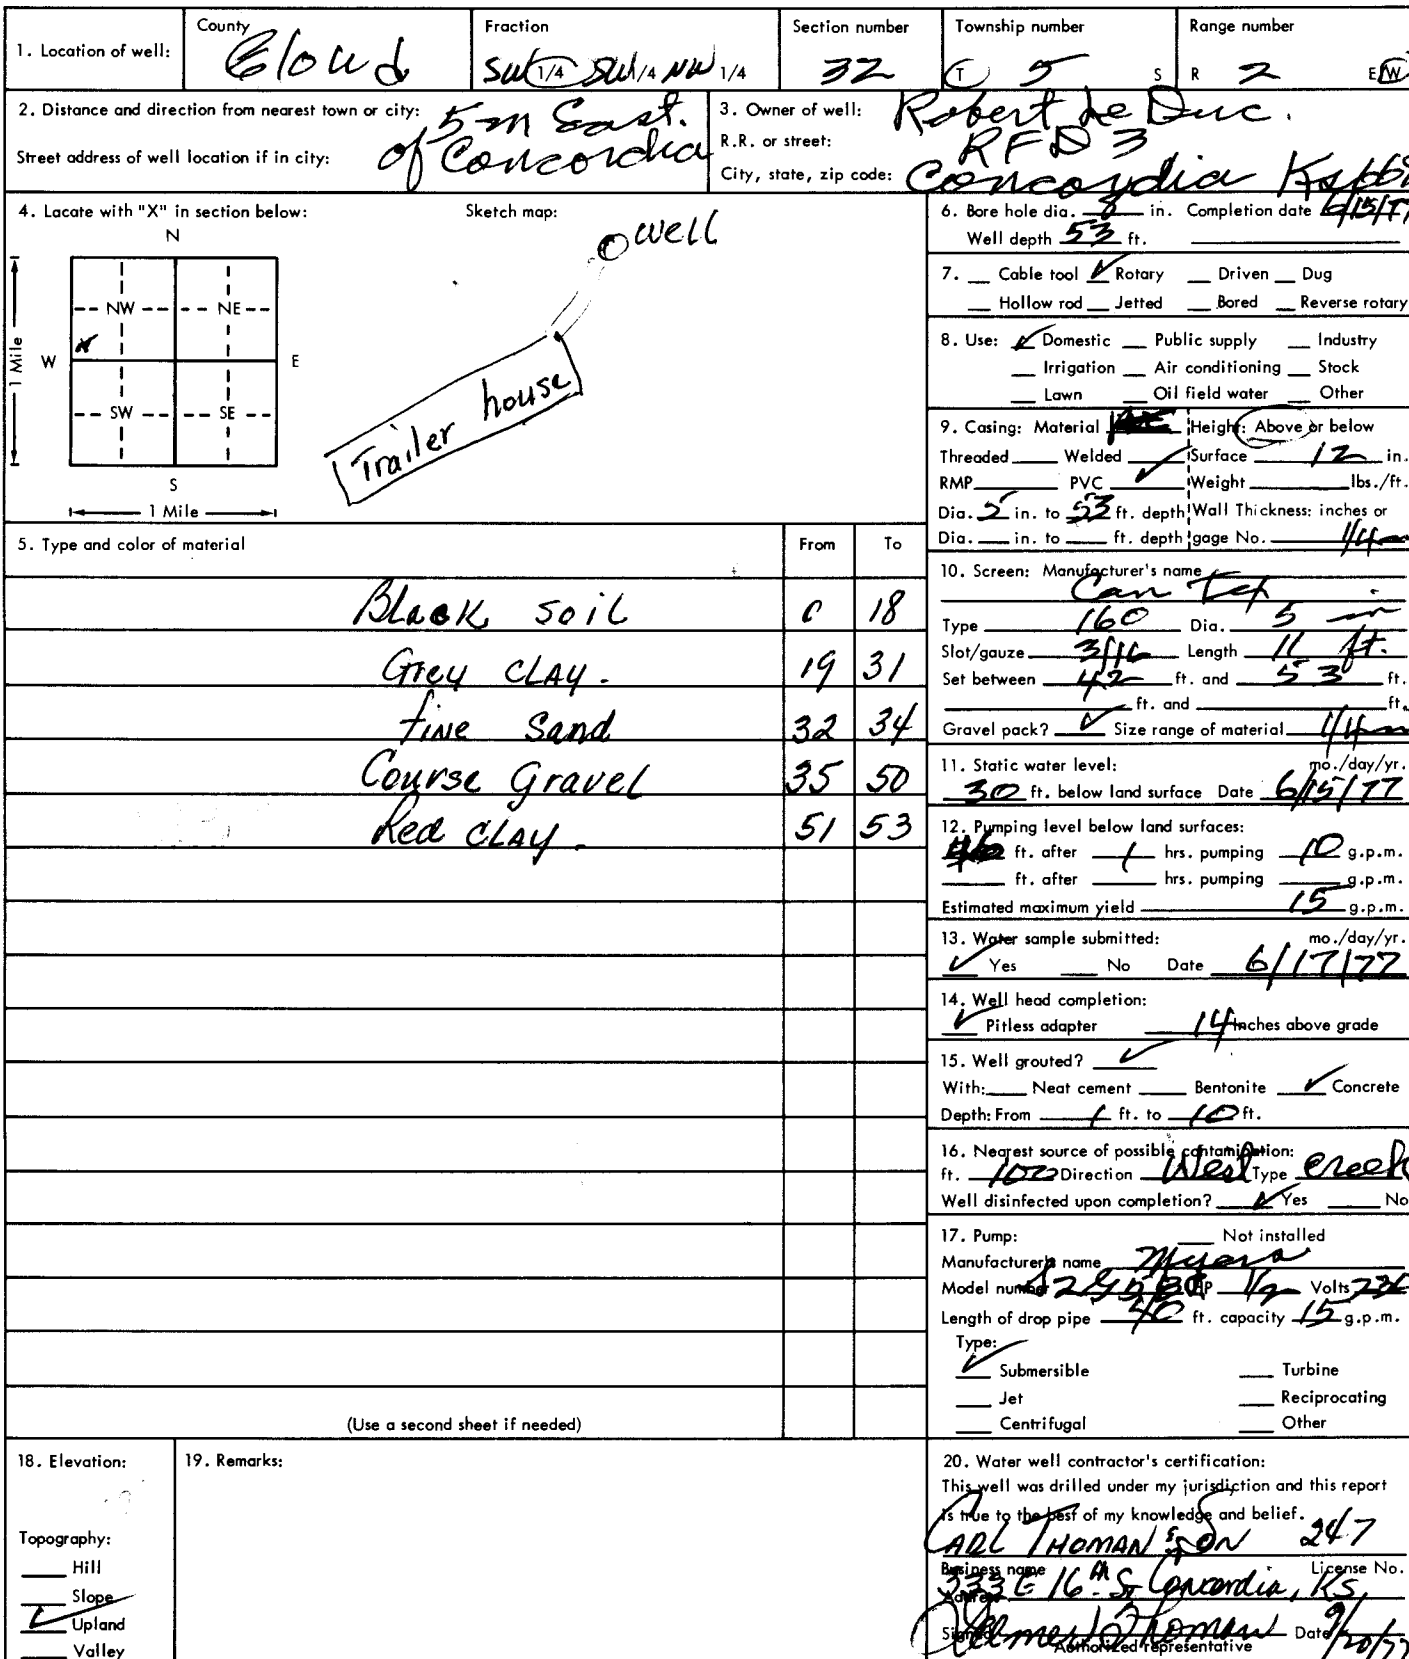 1. Location of well: County Cloud Fraction SW 1/4 SW 1/4 NW 1/4 Section number 32 Township number T 5 S Range number R 2 E/W
2. Distance and direction from nearest town or city: 5 m East.
of Concordia
Street address of well location if in city:
3. Owner of well: Robert Le Duc.
R.R. or street: RFD 3
City, state, zip code: Concordia
4. Lacate with "X" in section below:
N
NW NE
W E
SW SE
S
1 Mile
1 Mile
Sketch map:
well
Trailer house
5. Type and color of material From To
Black soil 0 18
Grey CLAY. 19 31
fine Sand 32 34
Course Gravel 35 50
Red CLAY. 51 53
(Use a second sheet if needed)
6. Bore hole dia. 8 in. Completion date 6/15/77
Well depth 53 ft.
7. Cable tool ✓ Rotary Driven Dug
Hollow rod Jetted Bored Reverse rotary
8. Use: ✓ Domestic Public supply Industry
Irrigation Air conditioning Stock
Lawn Oil field water Other
9. Casing: Material Height: Above or below
Threaded Welded Surface 12 in.
RMP PVC ✓ Weight lbs./ft.
Dia. 5 in. to 53 ft. depth Wall Thickness: inches or
Dia. in. to ft. depth gage No. 1/4
10. Screen: Manufacturer's name
Can Tex
Type 160 Dia. 5 in
Slot/gauze 3/16 Length 11 ft.
Set between 42 ft. and 53 ft.
ft. and ft.
Gravel pack? ✓ Size range of material 1/4
11. Static water level: mo./day/yr.
30 ft. below land surface Date 6/15/77
12. Pumping level below land surfaces:
ft. after 1 hrs. pumping 10 g.p.m.
ft. after hrs. pumping g.p.m.
Estimated maximum yield 15 g.p.m.
13. Water sample submitted: mo./day/yr.
✓ Yes No Date 6/17/77
14. Well head completion:
✓ Pitless adapter 14 Inches above grade
15. Well grouted? ✓
With: Neat cement Bentonite ✓ Concrete
Depth: From 1 ft. to 10 ft.
16. Nearest source of possible contamination:
ft. 100 Direction West Type Creek
Well disinfected upon completion? ✓ Yes No
17. Pump: Not installed
Manufacturer's name Myers
Model number HP 1/2 Volts
Length of drop pipe 40 ft. capacity 15 g.p.m.
Type:
✓ Submersible Turbine
Jet Reciprocating
Centrifugal Other
18. Elevation:
Topography:
Hill
Slope
✓ Upland
Valley
19. Remarks:
20. Water well contractor's certification:
This well was drilled under my jurisdiction and this report
is true to the best of my knowledge and belief.
CARL THOMAN & SON 247
Business name License No.
333 E 16th St Concordia, KS,
Address
Signed Thoman Date 9/20/77
Authorized representative